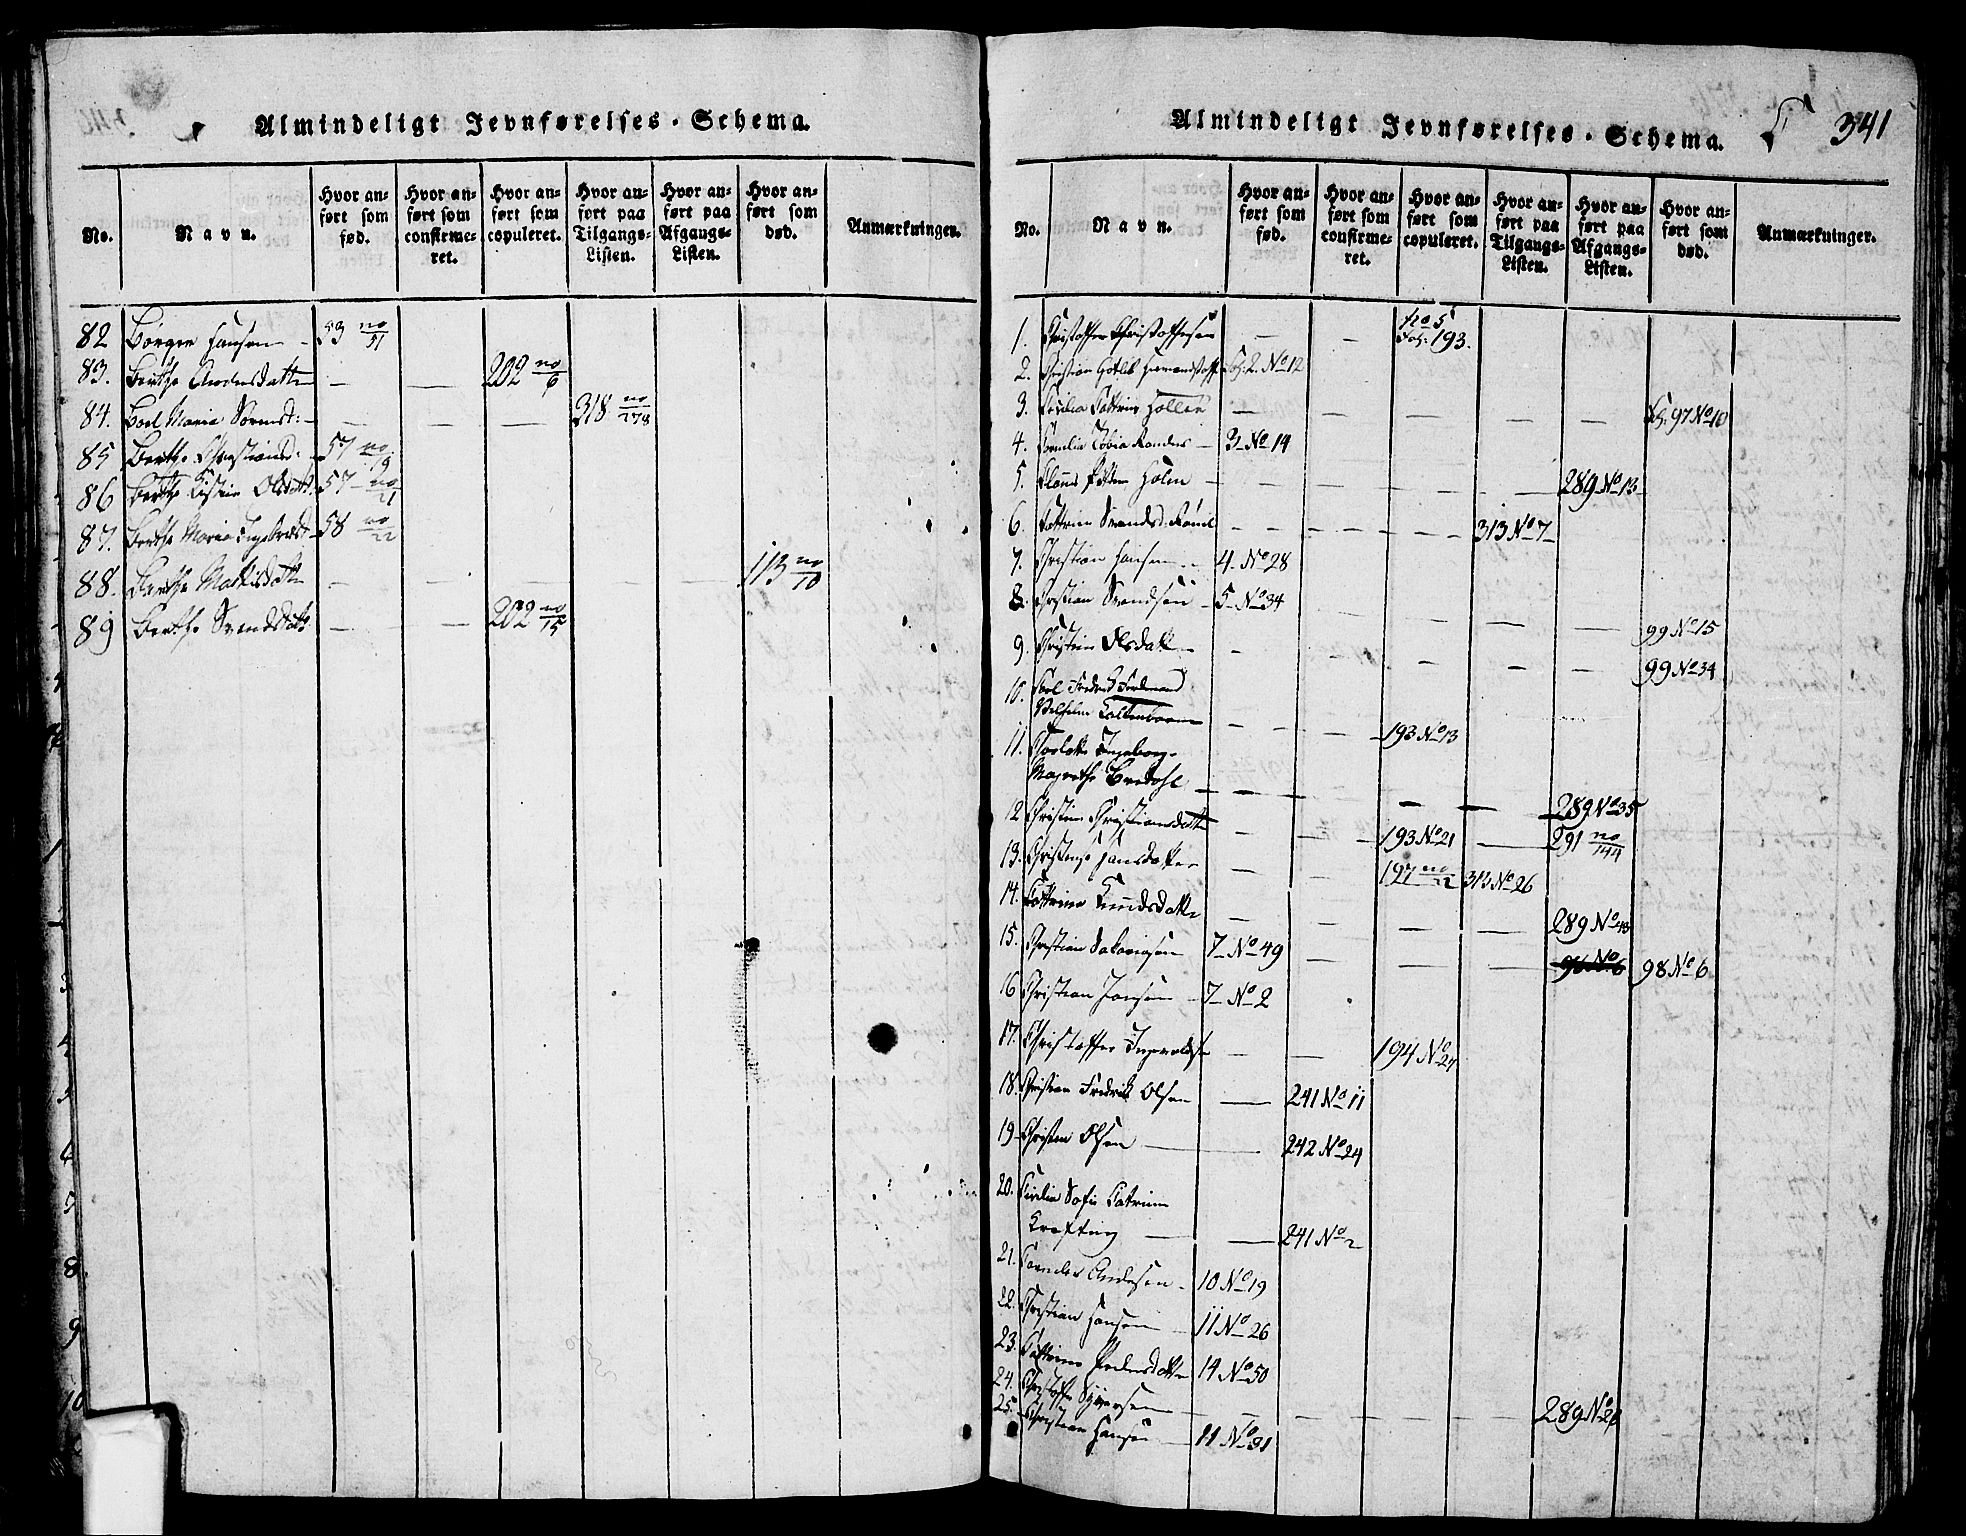 Almindeligt Jevnførelses-Schema.
No. Navn. Hvor anført som fød. Hvor anført som confirmeret. Hvor anført som copuleret. Hvor anført paa Tilgangs-Listen. Hvor anført paa Afgangs-Listen. Hvor anført som død. Anmærkninger.
82 Børger Hansen - 53 no/51
83. Berthe Andersdatter — — 202 no/6
84. Boel Maria — — — 318 no/278
85 Berthe Christiansd: 57 no/19
86 Berthe Olsdatt: 57 no/21
87. Berthe Maria 58 no/22
88. Berthe — — — 113 no/10
89 Berthe Svendsdatt — — 202 no/15
Almindeligt Jevnførelses-Schema. 341
No. Navn. Hvor anført som fød. Hvor anført som confirmeret. Hvor anført som copuleret. Hvor anført paa Tilgangs-Listen. Hvor anført paa Afgangs-Listen. Hvor anført som død. Anmærkninger.
1. Christoffer Christoffersen — — No 5 Fol: 193.
2. Christian Gotlib Fol: 2. No 12
3. Cecilia Cattrine — — — — — Fol: 97 No 10
4. Cornelia Tobia 3 No 14
5. Claus Petter Holm — — — — 289 No 13
6. Cattrine — — — 313 No 7
7. Christian Hansen 4. No 28
8. Christian Svendsen 5 No 34
— — — — — 99 No 15
9. Christine Olsdatter
— — — 99 No 34
10. Carl Fredrich Ferdinand
Vilhelm — — 193 No 13
11. Ingeborg
Magrethe — — — — 289 No 35
12 Christine Christiansdatter — — 193 No 21 — 291 no/144
13. Hansdatter — — 197 no/22 313 No 26
14. Cattrine Knudsdatter — — — — 289 No 48
15. Christian 7 No 49 — — — 98 No 6
16 Christian Jansen 7 No 2
17. Christoffer — — 194 No 27
18. Christian Fredrik Olsen — 241 No 11
19 Christen Olsen — 242 No 24
20. Sofie Catrine
— 241 No 2
21. Cornelius Andersen 10 No 19
22. Christian Hansen 11 No 26
23. Cattrine Pedersdatter 14 No 50
24. Syversen — — — — — 289 No
25. Christian Hansen 11 No 31